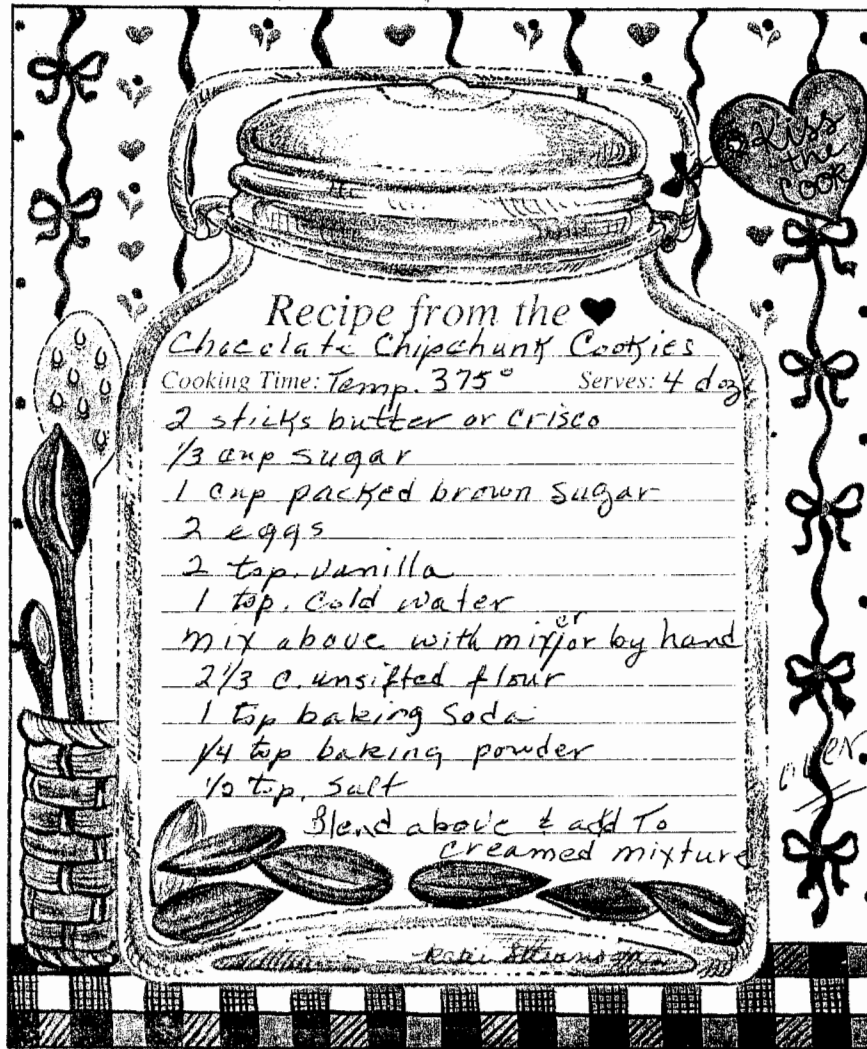 Kiss
the
Cook
Recipe from the ♥
Chocolate Chipchunk Cookies
Cooking Time: Temp. 375° Serves: 4 doz.
2 sticks butter or Crisco
1/3 cup sugar
1 cup packed brown sugar
2 eggs
2 tsp. vanilla
1 tsp. cold water
mix above with mixer/or by hand
2 1/3 c. unsifted flour
1 tsp baking soda
1/4 tsp baking powder
1/2 tsp. salt
Blend above & add To
creamed mixture
OVER